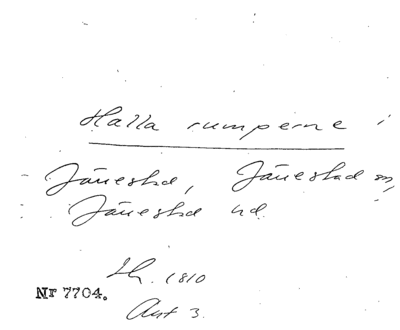 Halla rumperne i
Jånestad, Jånestad sn,
Jånestad hd.
Sk. 1810
Nr 7704.
Ant 3.